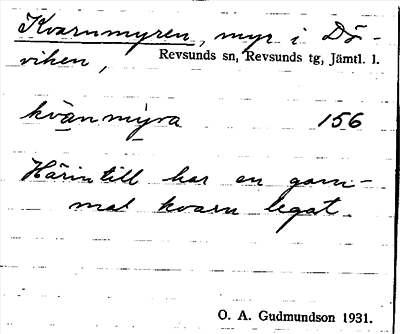 Kvarnmyren, myr i Dö-
viken, Revsunds sn, Revsunds tg, Jämtl. l.
kvä̀nmýra 156
Härintill har en gam-
mal kvarn legat.
O. A. Gudmundson 1931.